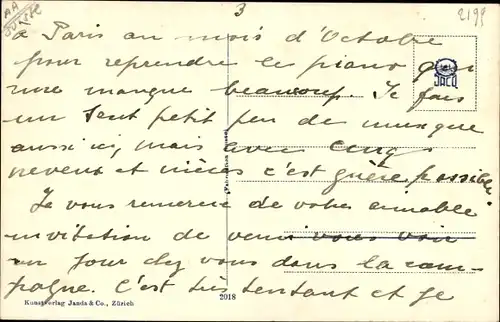 AA
SUISSE
3
2199
à Paris au mois d'Octobre
pour reprendre le piano qui
me manque beaucoup. Je fais
un tout petit peu de musique
aussi ici, mais avec cinq
neveux et nièces c'est guère possible.
Je vous remercie de votre aimable
invitation de venir vous voir
un jour chez vous dans la cam-
pagne. C'est très tentant et je
JACO
Kunstverlag Janda & Co., Zürich
2018